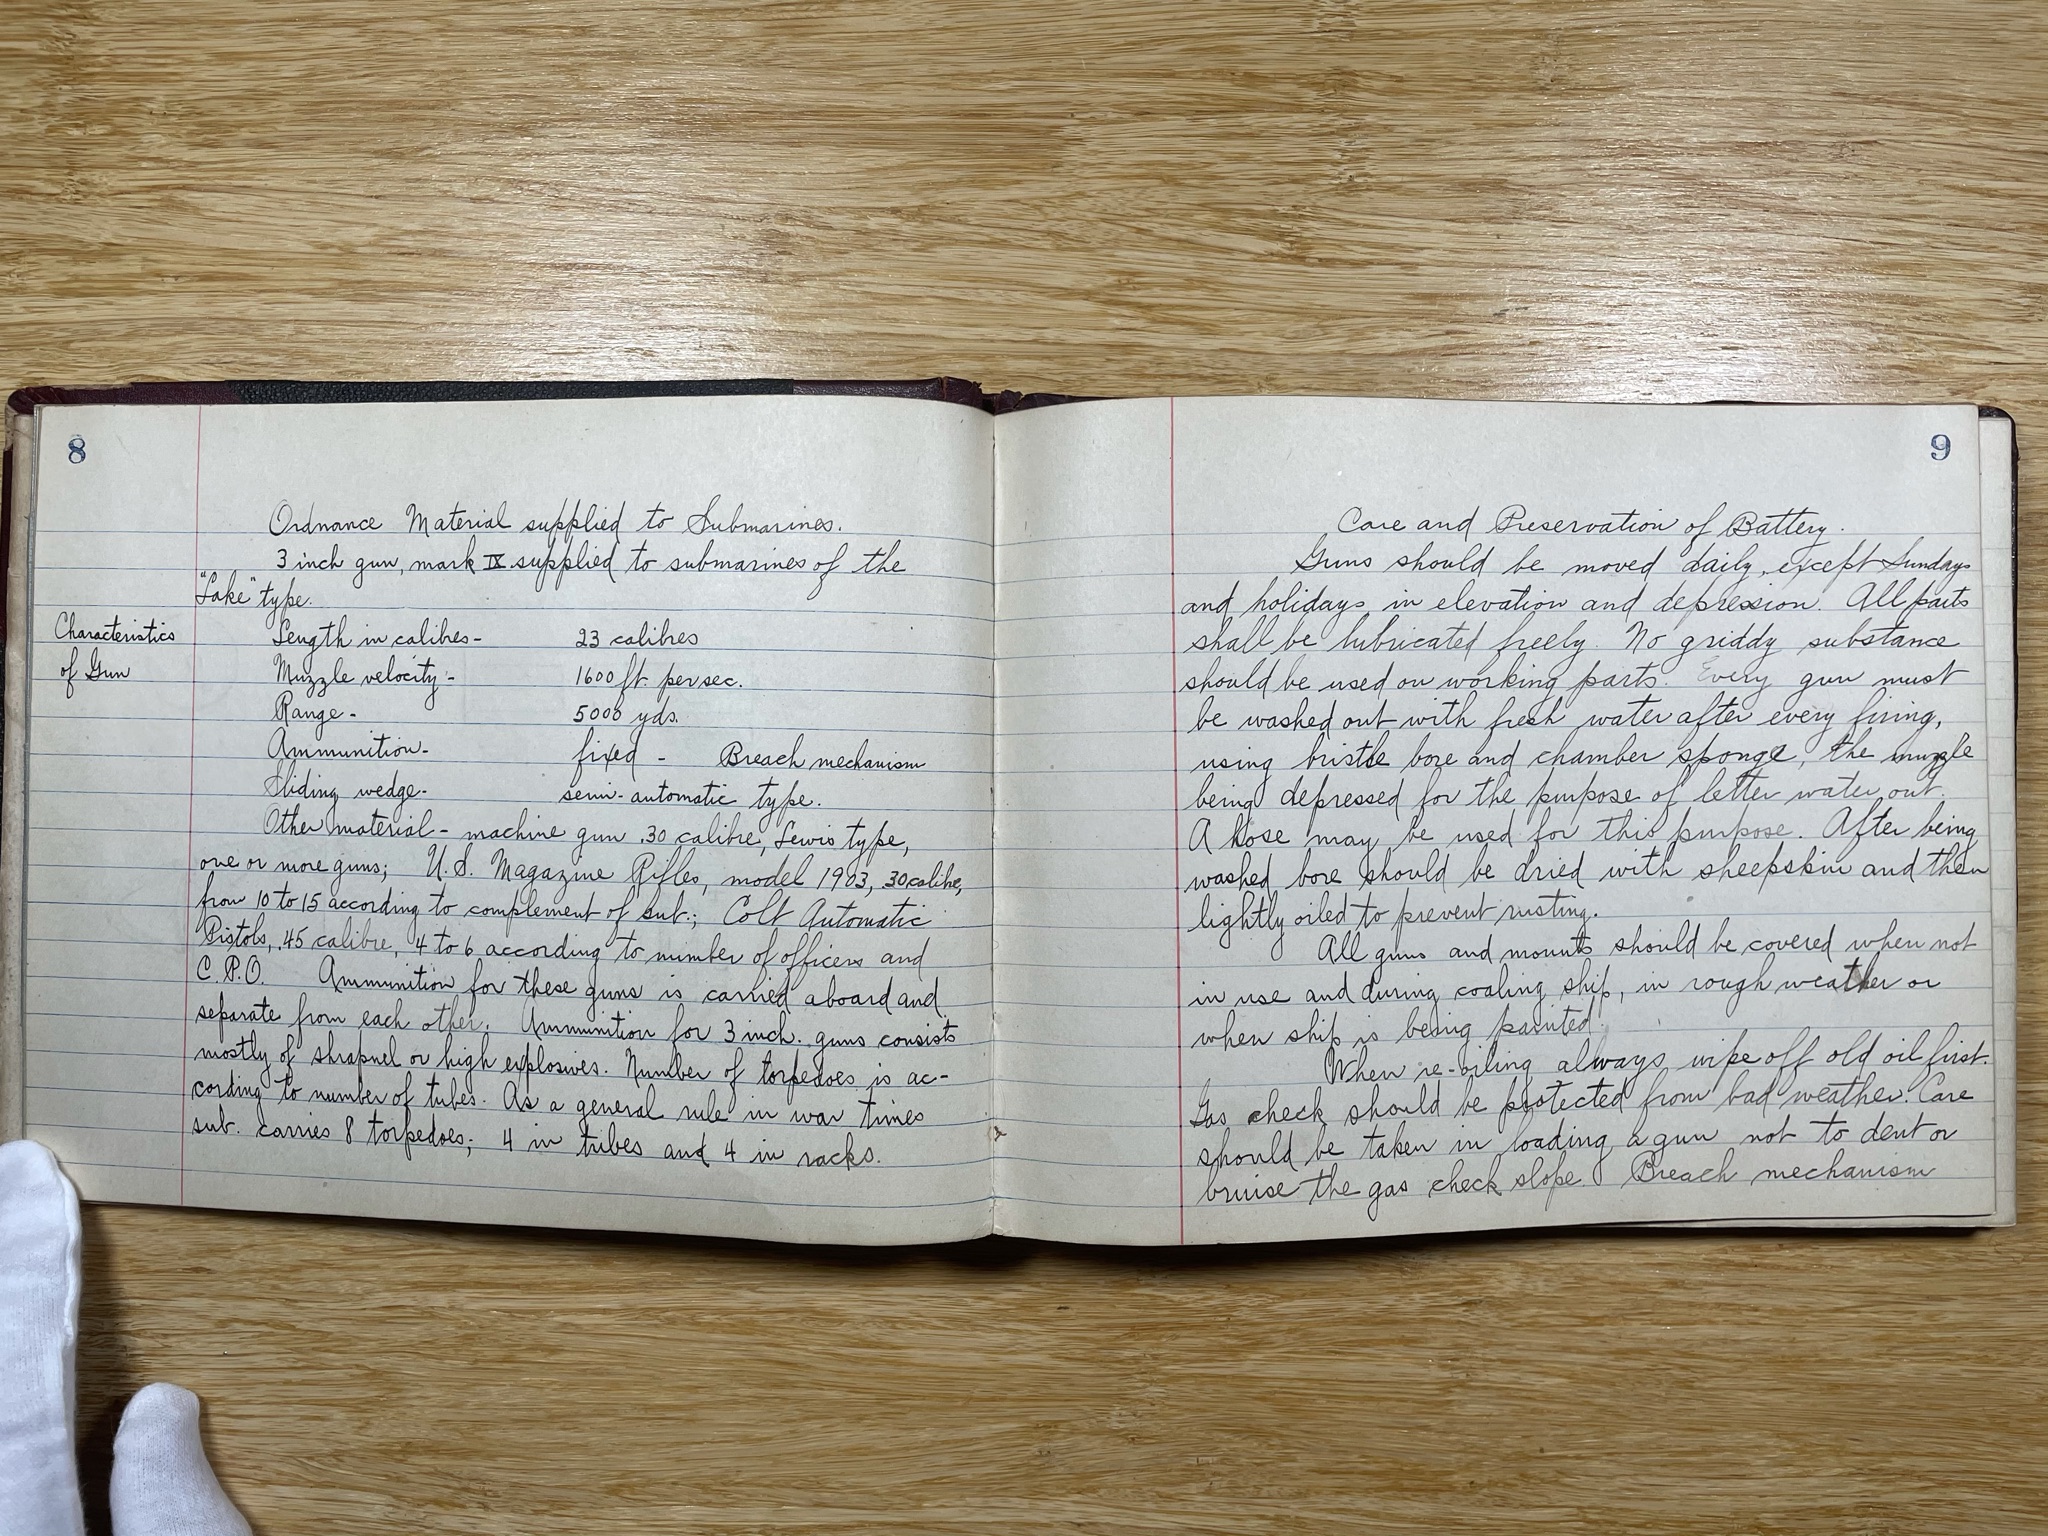 8
Ordnance Material supplied to Submarines.
3 inch gun, mark IX supplied to submarines of the
"Lake" type.
Characteristics
of Gun
Length in calibres- 23 calibres
Muzzle velocity- 1600 ft. per sec.
Range- 5000 yds.
Ammunition- fixed - Breach mechanism
Sliding wedge- semi-automatic type.
Other material- machine gun .30 calibre, Lewis type,
one or more guns; U.S. Magazine Rifles, model 1903, .30 calibre,
from 10 to 15 according to complement of sub.; Colt Automatic
Pistols, .45 calibre, 4 to 6 according to number of officers and
C.P.O. Ammunition for these guns is carried aboard and
separate from each other. Ammunition for 3 inch. guns consists
mostly of shrapnel or high explosives. Number of torpedoes is ac-
cording to number of tubes. As a general rule in war times
sub. carries 8 torpedoes; 4 in tubes and 4 in racks.
9
Care and Preservation of Battery.
Guns should be moved daily, except Sundays
and holidays in elevation and depression. All parts
shall be lubricated freely. No griddy substance
should be used on working parts. Every gun must
be washed out with fresh water after every firing,
using bristle bore and chamber sponge, the muzzle
being depressed for the purpose of letter water out.
A hose may be used for this purpose. After being
washed bore should be dried with sheepskin and then
lightly oiled to prevent rusting.
All guns and mounts should be covered when not
in use and during coaling ship, in rough weather or
when ship is being painted.
When re-oiling always wipe off old oil first.
Gas check should be protected from bad weather. Care
should be taken in loading a gun not to dent or
bruise the gas check slope. Breach mechanism